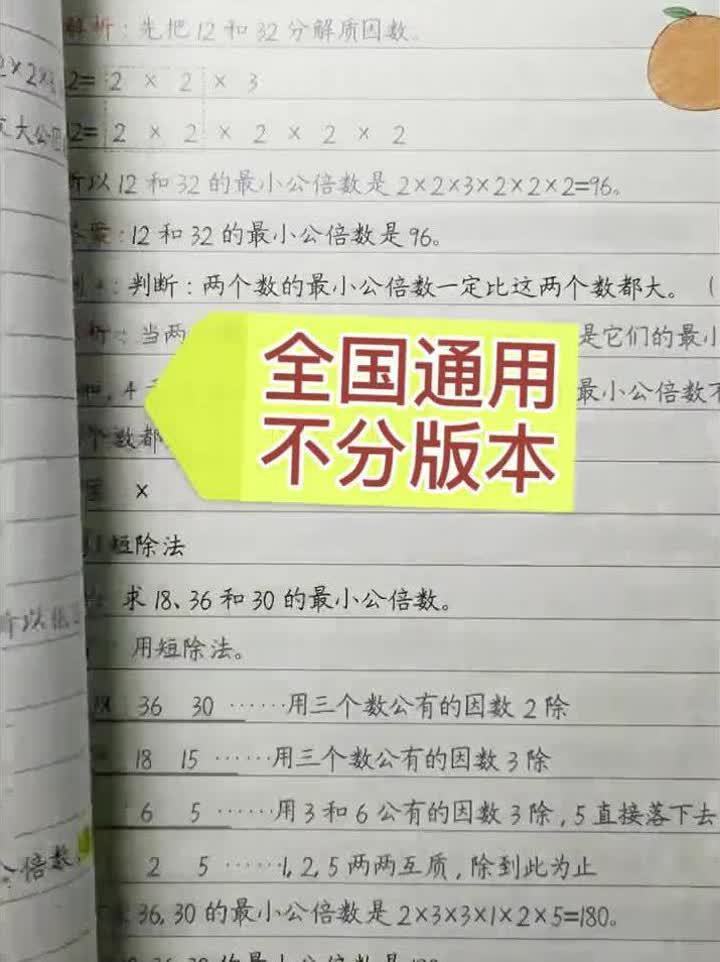 解析：先把12和32分解质因数。
2=2×2×3
2=2×2×2×2×2
所以12和32的最小公倍数是2×2×3×2×2×2=96。
答案：12和32的最小公倍数是96。
：判断：两个数的最小公倍数一定比这两个数都大。（
析：当两
是它们的最小
4
最小公倍数不
个数都
全国通用
不分版本
×
短除法
求18、36和30的最小公倍数。
用短除法。
36 30 ……用三个数公有的因数2除
18 15 ……用三个数公有的因数3除
6 5 ……用3和6公有的因数3除，5直接落下去
2 5 ……1，2，5两两互质，除到此为止
36，30的最小公倍数是2×3×3×1×2×5=180。